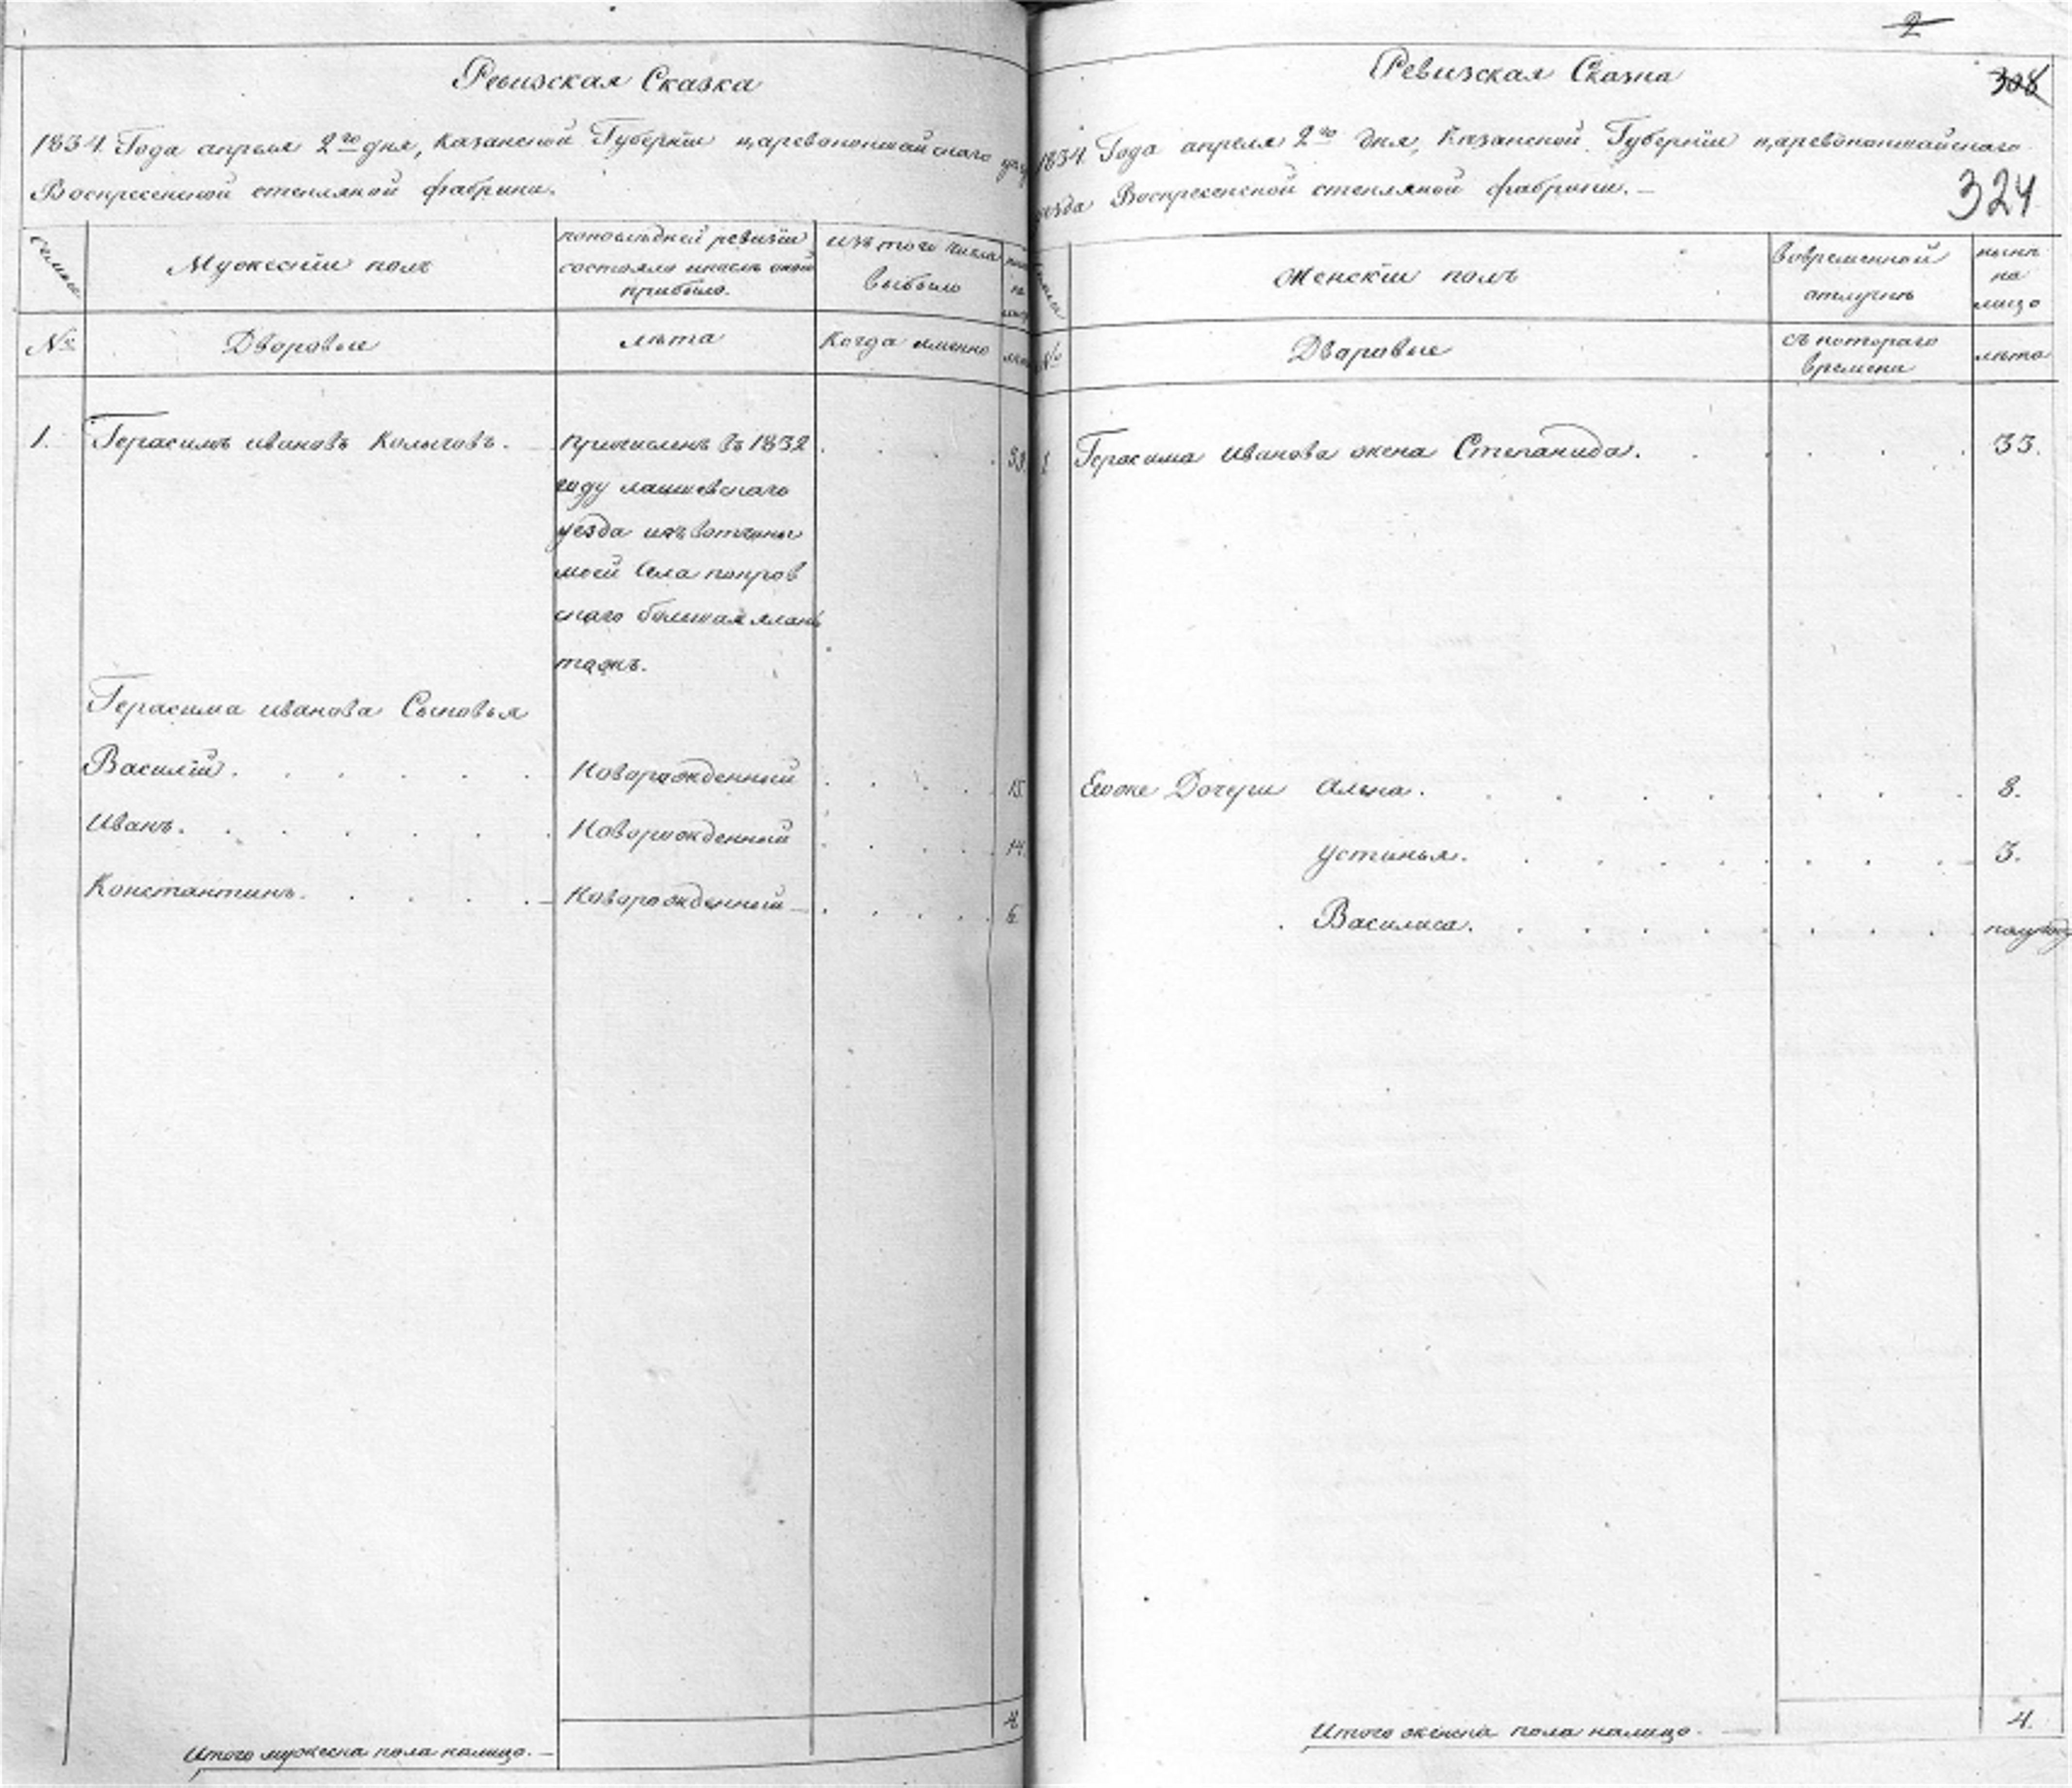 Ревизская Сказка
1834. Года апреля 2го дня, Казанской Губернїи царевококшайскаго уез
Воскресенской стеклякой фабрики.
Семьи
Мужескїи полъ
попоследней ревизїи
состояло ипосле оной
прибыло.
изъ того числа
выбыло
№
Дворовые
лѣта
Когда имянно
лѣта
1. Герасимъ ивановъ Колычовъ. причисленъ въ 1832 33.
году лаишевскаго
уезда изъ вотчины
моей Села покров
скаго болшая
Герасима иванова Сыновья
Василїй. Новорожденный 15.
Иванъ. Новорожденный 14.
Константинъ. Новорожденный 6.
Итого мужеска пола налицо. 4.
2
308
324
Ревизская Сказка
1834. Года апреля 2го дня, Казанской Губернїи царевококшайскаго
уезда Воскресенской стекляной фабрики.
Семьи
Женскїи полъ
вовременной
отлучке
ныне
на
лицо
№
Дворовые
съ котораго
времени
лѣта
1. Герасима иванова жена Степанида. 33.
Ево же Дочери Алена. 8.
устинья. 3.
Василиса. полугоду
Итого женска пола налицо. 4.